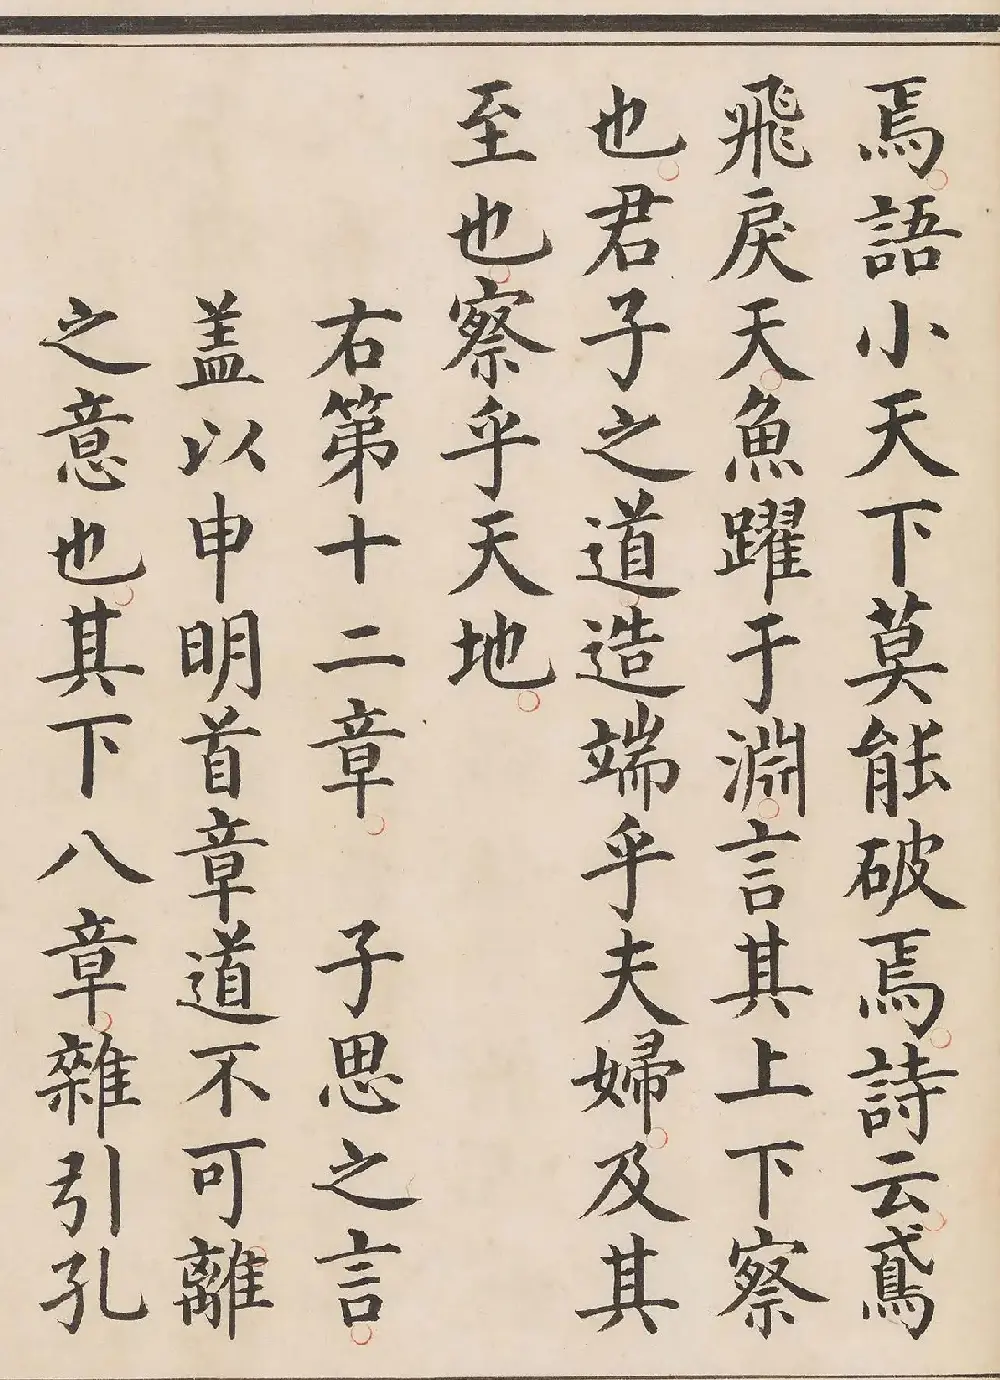 焉語小天下莫能破焉詩云鳶
飛戾天魚躍于淵言其上下察
也君子之道造端乎夫婦及其
至也察乎天地
右第十二章　子思之言
盖以申明首章道不可離
之意也其下八章雜引孔